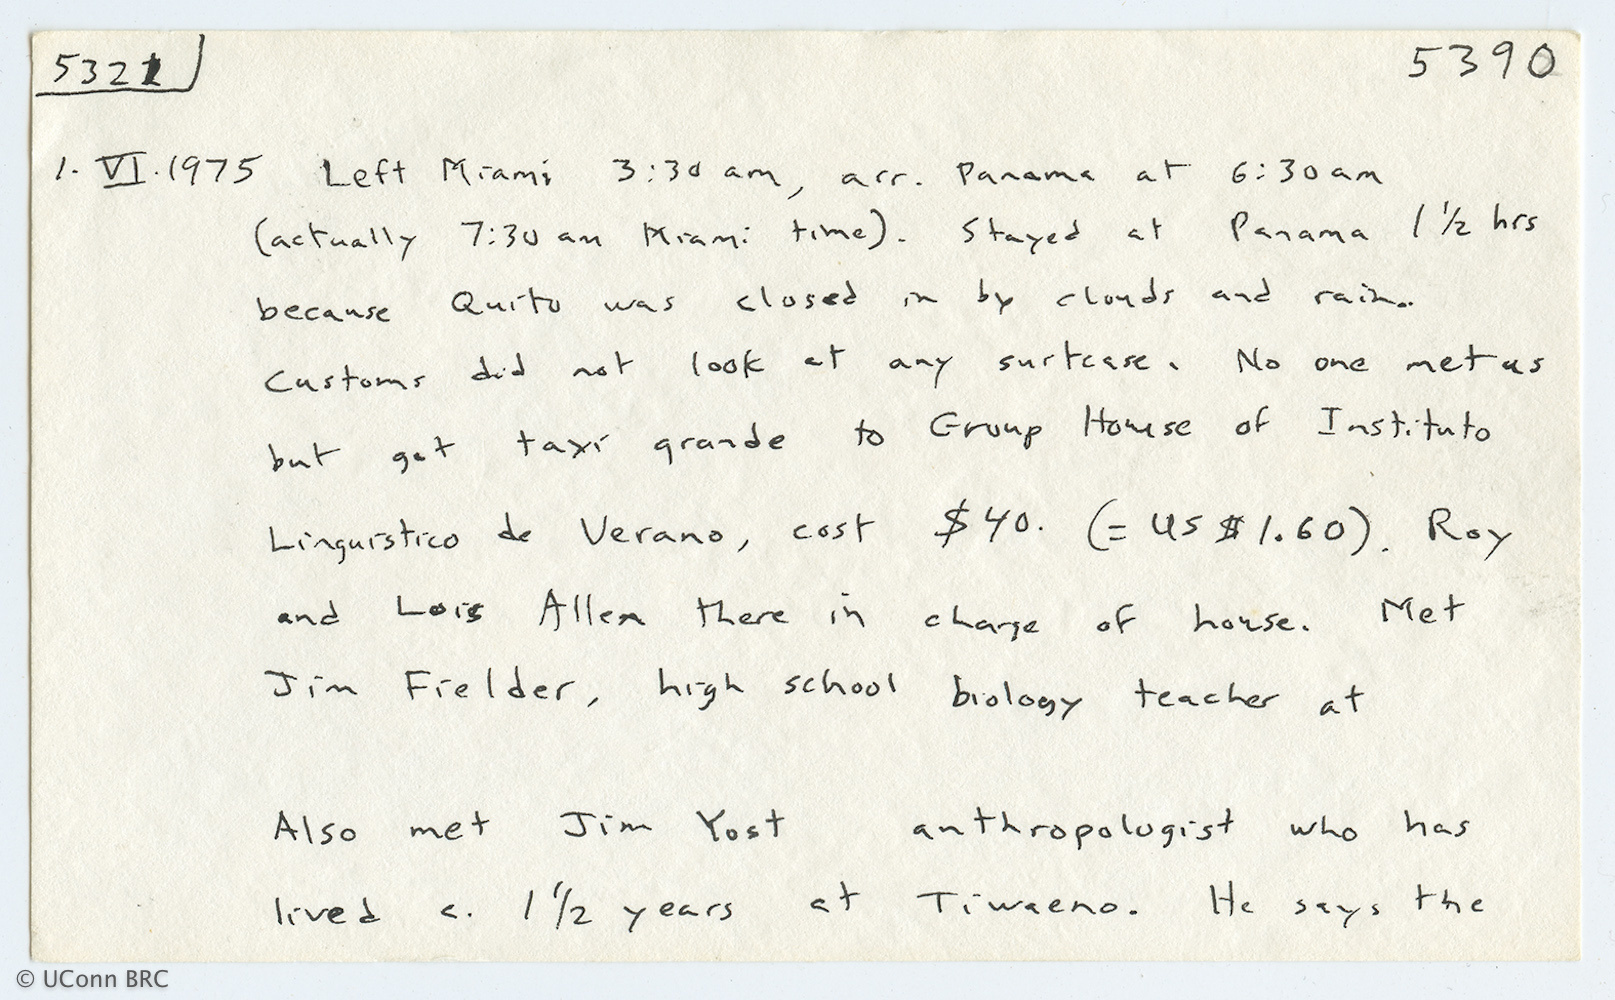 5321
5390
1. VI. 1975 Left Miami 3:30 am, arr. Panama at 6:30 am
(actually 7:30 am Miami time). Stayed at Panama 1 1/2 hrs
because Quito was closed in by clouds and rain.
Customs did not look at any suitcase. No one met us
but got taxi grande to Group House of Instituto
Linguistico de Verano, cost $40. (= US $1.60). Roy
and Lois Allen there in charge of house. Met
Jim Fielder, high school biology teacher at
Also met Jim Yost anthropologist who has
lived c. 1 1/2 years at Tiwaeno. He says the
© UConn BRC